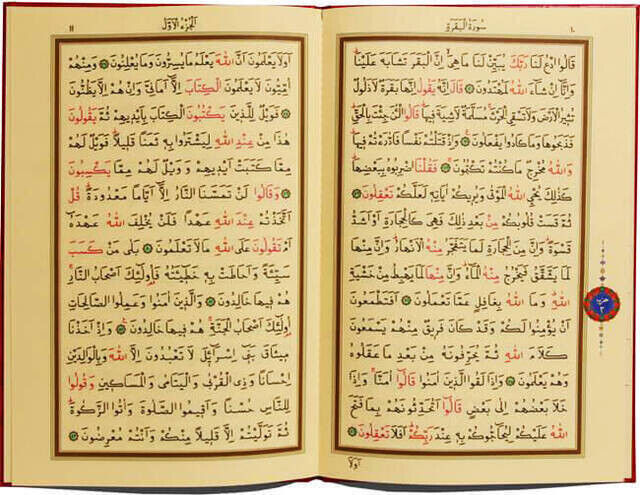 ١٠
سُورَةُ الْبَقَرَةِ
قَالُوا ادْعُ لَنَا رَبَّكَ يُبَيِّنْ لَنَا مَا هِيَ اِنَّ الْبَقَرَ تَشَابَهَ عَلَيْنَا
وَاِنَّٓا اِنْ شَٓاءَ اللّٰهُ لَمُهْتَدُونَ قَالَ اِنَّهُ يَقُولُ اِنَّهَا بَقَرَةٌ لَا ذَلُولٌ
تُثِيرُ الْاَرْضَ وَلَا تَسْقِي الْحَرْثَ مُسَلَّمَةٌ لَا شِيَةَ فِيهَا قَالُوا الْـٰٔنَ جِئْتَ بِالْحَقِّ
فَذَبَحُوهَا وَمَا كَادُوا يَفْعَلُونَ وَاِذْ قَتَلْتُمْ نَفْسًا فَادّٰرَءْتُمْ فِيهَا
وَاللّٰهُ مُخْرِجٌ مَا كُنْتُمْ تَكْتُمُونَ فَقُلْنَا اضْرِبُوهُ بِبَعْضِهَا
كَذٰلِكَ يُحْيِي اللّٰهُ الْمَوْتٰى وَيُرِيكُمْ اٰيَاتِهِ لَعَلَّكُمْ تَعْقِلُونَ
ثُمَّ قَسَتْ قُلُوبُكُمْ مِنْ بَعْدِ ذٰلِكَ فَهِيَ كَالْحِجَارَةِ اَوْ اَشَدُّ
قَسْوَةً وَاِنَّ مِنَ الْحِجَارَةِ لَمَا يَتَفَجَّرُ مِنْهُ الْاَنْهَارُ وَاِنَّ مِنْهَا
لَمَا يَشَّقَّقُ فَيَخْرُجُ مِنْهُ الْمَٓاءُ وَاِنَّ مِنْهَا لَمَا يَهْبِطُ مِنْ خَشْيَةِ
اللّٰهِ وَمَا اللّٰهُ بِغَافِلٍ عَمَّا تَعْمَلُونَ اَفَتَطْمَعُونَ
اَنْ يُؤْمِنُوا لَكُمْ وَقَدْ كَانَ فَرِيقٌ مِنْهُمْ يَسْمَعُونَ
كَلَامَ اللّٰهِ ثُمَّ يُحَرِّفُونَهُ مِنْ بَعْدِ مَا عَقَلُوهُ
وَهُمْ يَعْلَمُونَ وَاِذَا لَقُوا الَّذِينَ اٰمَنُوا قَالُٓوا اٰمَنَّا وَاِذَا
خَلَا بَعْضُهُمْ اِلٰى بَعْضٍ قَالُٓوا اَتُحَدِّثُونَهُمْ بِمَا فَتَحَ
اللّٰهُ عَلَيْكُمْ لِيُحَٓاجُّوكُمْ بِهِ عِنْدَ رَبِّكُمْ اَفَلَا تَعْقِلُونَ
اَوَلَا
حزب ٢
اَلْجُزْءُ الْاَوَّلُ
١١
اَوَلَا يَعْلَمُونَ اَنَّ اللّٰهَ يَعْلَمُ مَا يُسِرُّونَ وَمَا يُعْلِنُونَ وَمِنْهُمْ
اُمِّيُّونَ لَا يَعْلَمُونَ الْكِتَابَ اِلَّٓا اَمَانِيَّ وَاِنْ هُمْ اِلَّا يَظُنُّونَ
فَوَيْلٌ لِلَّذِينَ يَكْتُبُونَ الْكِتَابَ بِاَيْدِيهِمْ ثُمَّ يَقُولُونَ
هٰذَا مِنْ عِنْدِ اللّٰهِ لِيَشْتَرُوا بِهِ ثَمَنًا قَلِيلًا فَوَيْلٌ لَهُمْ
مِمَّا كَتَبَتْ اَيْدِيهِمْ وَوَيْلٌ لَهُمْ مِمَّا يَكْسِبُونَ
وَقَالُوا لَنْ تَمَسَّنَا النَّارُ اِلَّٓا اَيَّامًا مَعْدُودَةً قُلْ
اَتَّخَذْتُمْ عِنْدَ اللّٰهِ عَهْدًا فَلَنْ يُخْلِفَ اللّٰهُ عَهْدَهُ
اَمْ تَقُولُونَ عَلَى اللّٰهِ مَا لَا تَعْلَمُونَ بَلٰى مَنْ كَسَبَ
سَيِّئَةً وَاَحَاطَتْ بِهِ خَطِٓيـَٔتُهُ فَاُولٰٓئِكَ اَصْحَابُ النَّارِ
هُمْ فِيهَا خَالِدُونَ وَالَّذِينَ اٰمَنُوا وَعَمِلُوا الصَّالِحَاتِ
اُولٰٓئِكَ اَصْحَابُ الْجَنَّةِ هُمْ فِيهَا خَالِدُونَ وَاِذْ اَخَذْنَا
مِيثَاقَ بَنِٓي اِسْرَٓائِيلَ لَا تَعْبُدُونَ اِلَّا اللّٰهَ وَبِالْوَالِدَيْنِ
اِحْسَانًا وَذِي الْقُرْبٰى وَالْيَتَامٰى وَالْمَسَاكِينِ وَقُولُوا
لِلنَّاسِ حُسْنًا وَاَقِيمُوا الصَّلٰوةَ وَاٰتُوا الزَّكٰوةَ
ثُمَّ تَوَلَّيْتُمْ اِلَّا قَلِيلًا مِنْكُمْ وَاَنْتُمْ مُعْرِضُونَ